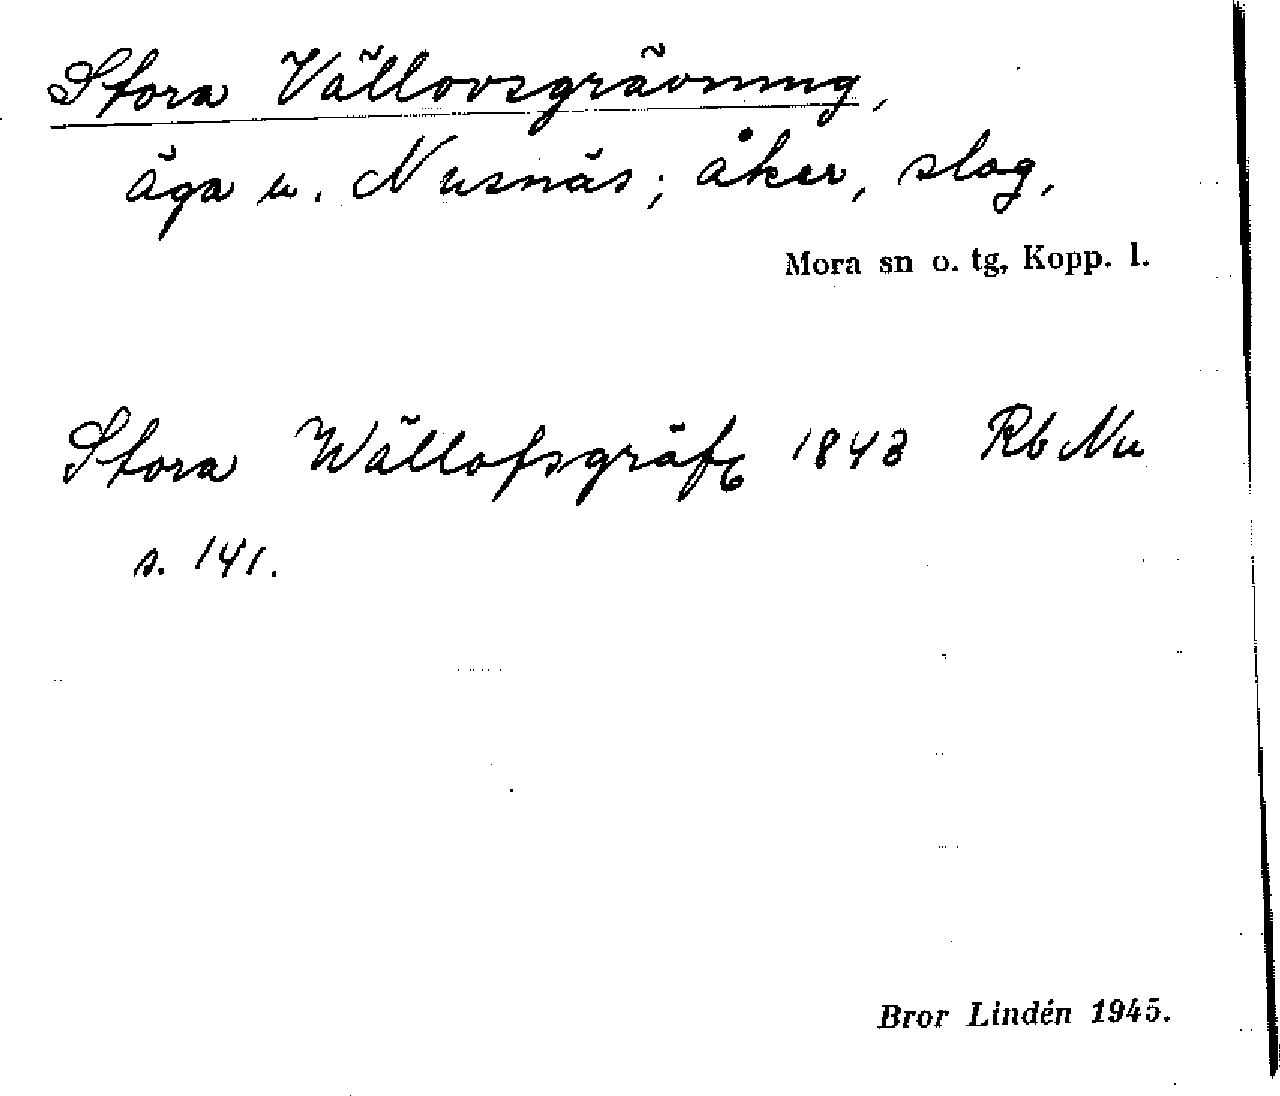 Stora Vällovsgrävning,
äga u. Nusnäs; åker, slog,
Mora sn o. tg, Kopp. l.
Stora Wällofsgräfn 1843 Rb Nu
s. 141.
Bror Lindén 1945.